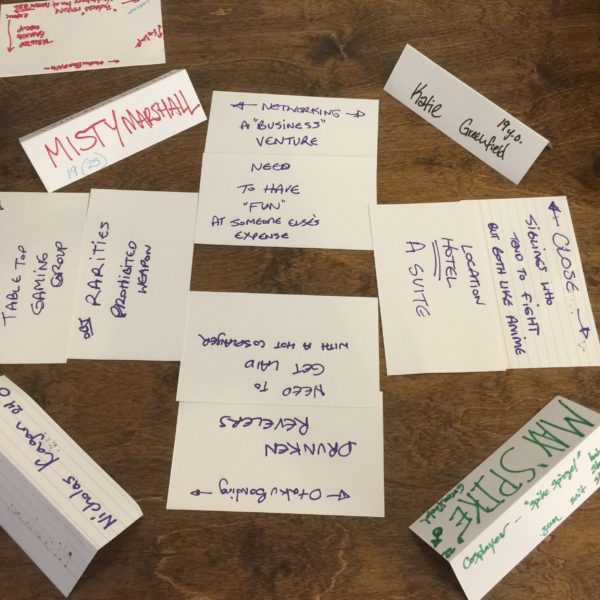 MISTY MARSHALL
19 (25)
NETWORKING
A "BUSINESS"
VENTURE
NEED
TO HAVE
"FUN"
AT SOMEONE ELSE'S
EXPENSE
Katie Greenfield
19 y.o.
TABLE TOP
GAMING
GROUP
OBJ RARITIES
PROHIBITED
WEAPON
CLOSE
SIBLINGS WHO
TEND TO FIGHT
BUT BOTH LIKE ANIME
LOCATION
HOTEL
A SUITE
NEED TO
GET LAID
WITH A HOT COSPLAYER
Otaku Bonding
DRUNKEN
REVELERS
Nicholas Kagan
MAX "SPIKE"
Greenfield
Cosplayer - "Spike Spiegel"
suit